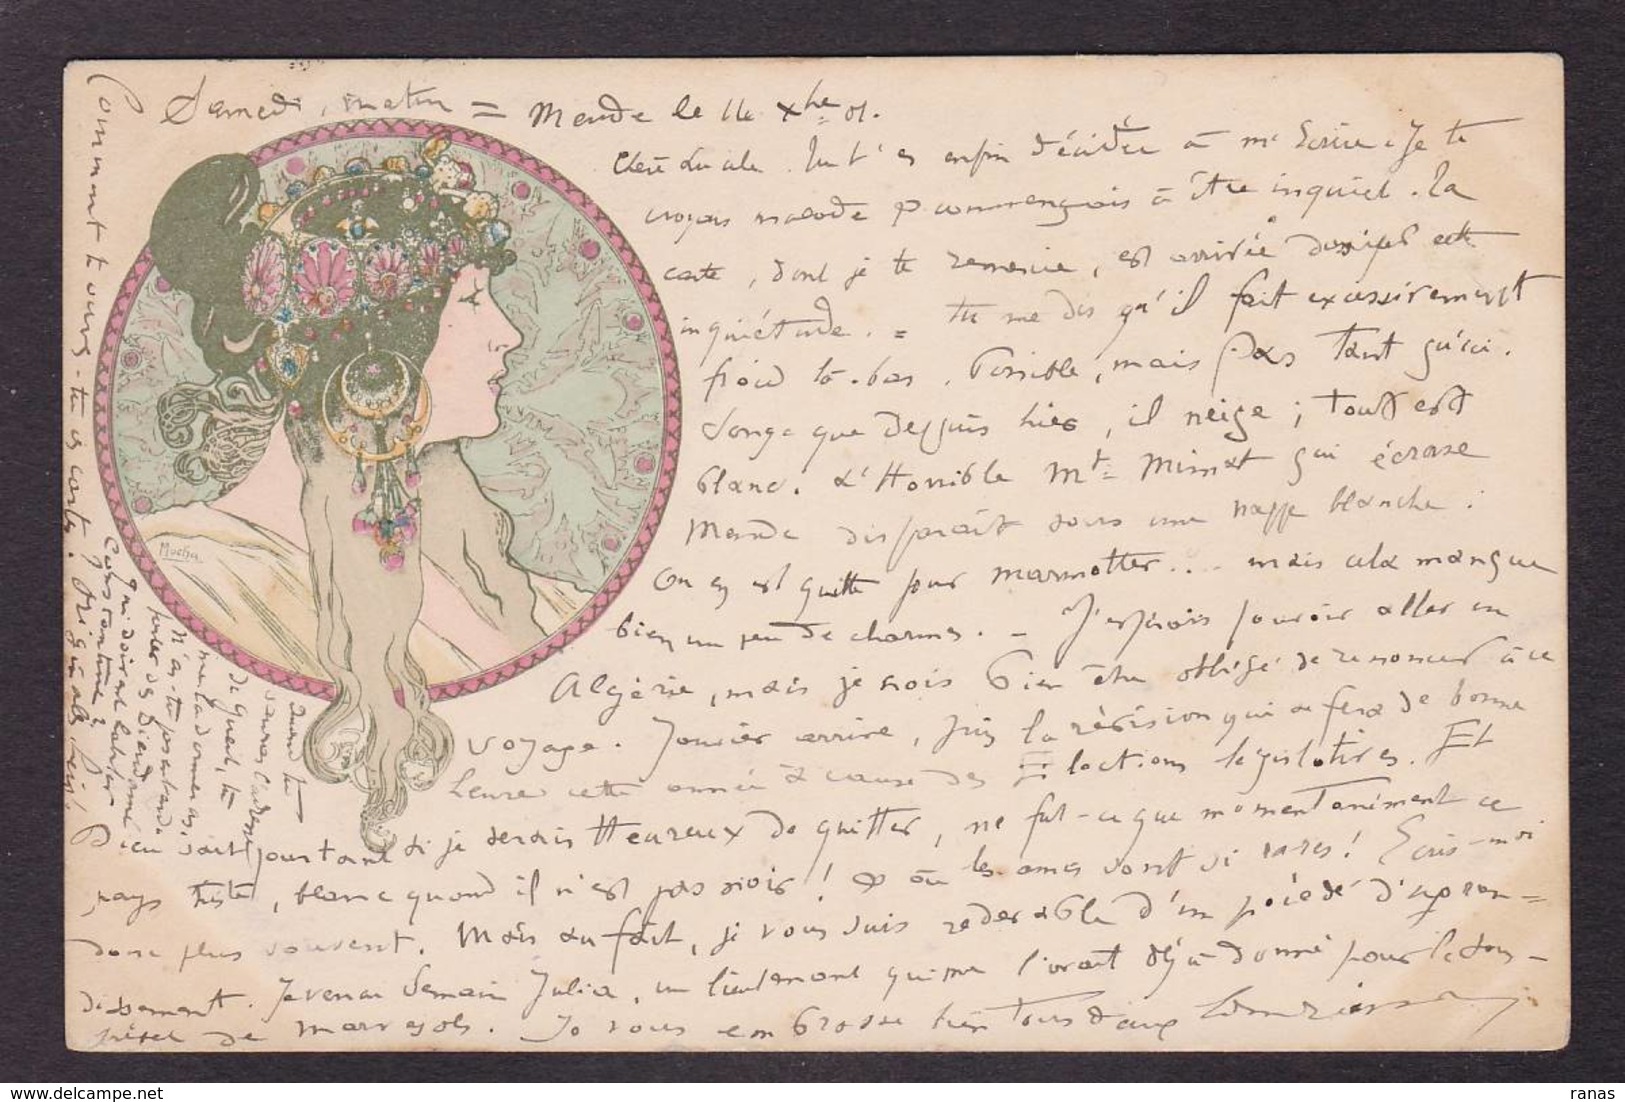 Samedi, matin = Mende le 14 Xbre 01.
Chère Lucile. Tu t'es enfin décidée à m'écrire. Je te
croyais malade & commençais à être inquiet. Ta
carte, dont je te remercie, est arrivée dissiper cette
inquiétude. = Tu me dis qu'il fait excessivement
froid là-bas. Possible, mais pas tant qu'ici.
Songe que depuis hier, il neige ; tout est
blanc. L'Horrible Mt Mimat qui écrase
Mende disparaît sous une nappe blanche.
On en est quitte pour marmotter.... mais cela manque
bien un peu de charmes. - J'espérais pouvoir aller en
Algérie, mais je vais bien être obligé de renoncer à ce
voyage. Janvier arrive, puis la révision qui se fera de bonne
heure cette année à cause des Elections législatives. Et
pourtant si je serais Heureux de quitter, ne fut-ce que momentanément ce
pays triste, blanc quand il n'est pas noir ! & où les âmes sont si rares ! Ecris-moi
donc plus souvent. Mais au fait, je vous suis redevable d'un procédé d'appren-
dissement. Je venais demain Julia, un lieutenant qui me l'avait déjà donné pour le sous-
préfet de Marvejols. Je vous embrasse bien tous deux
Comment trouves-tu ces cartes ? Originales hein !
Constantine ?
qui doivent habiter
parler des Dieudonné
N'as-tu pas entendu
me la donneras.
de Gueit, tu
sauras l'adresse
Quand tu
Mucha
ranas
delcampe.net